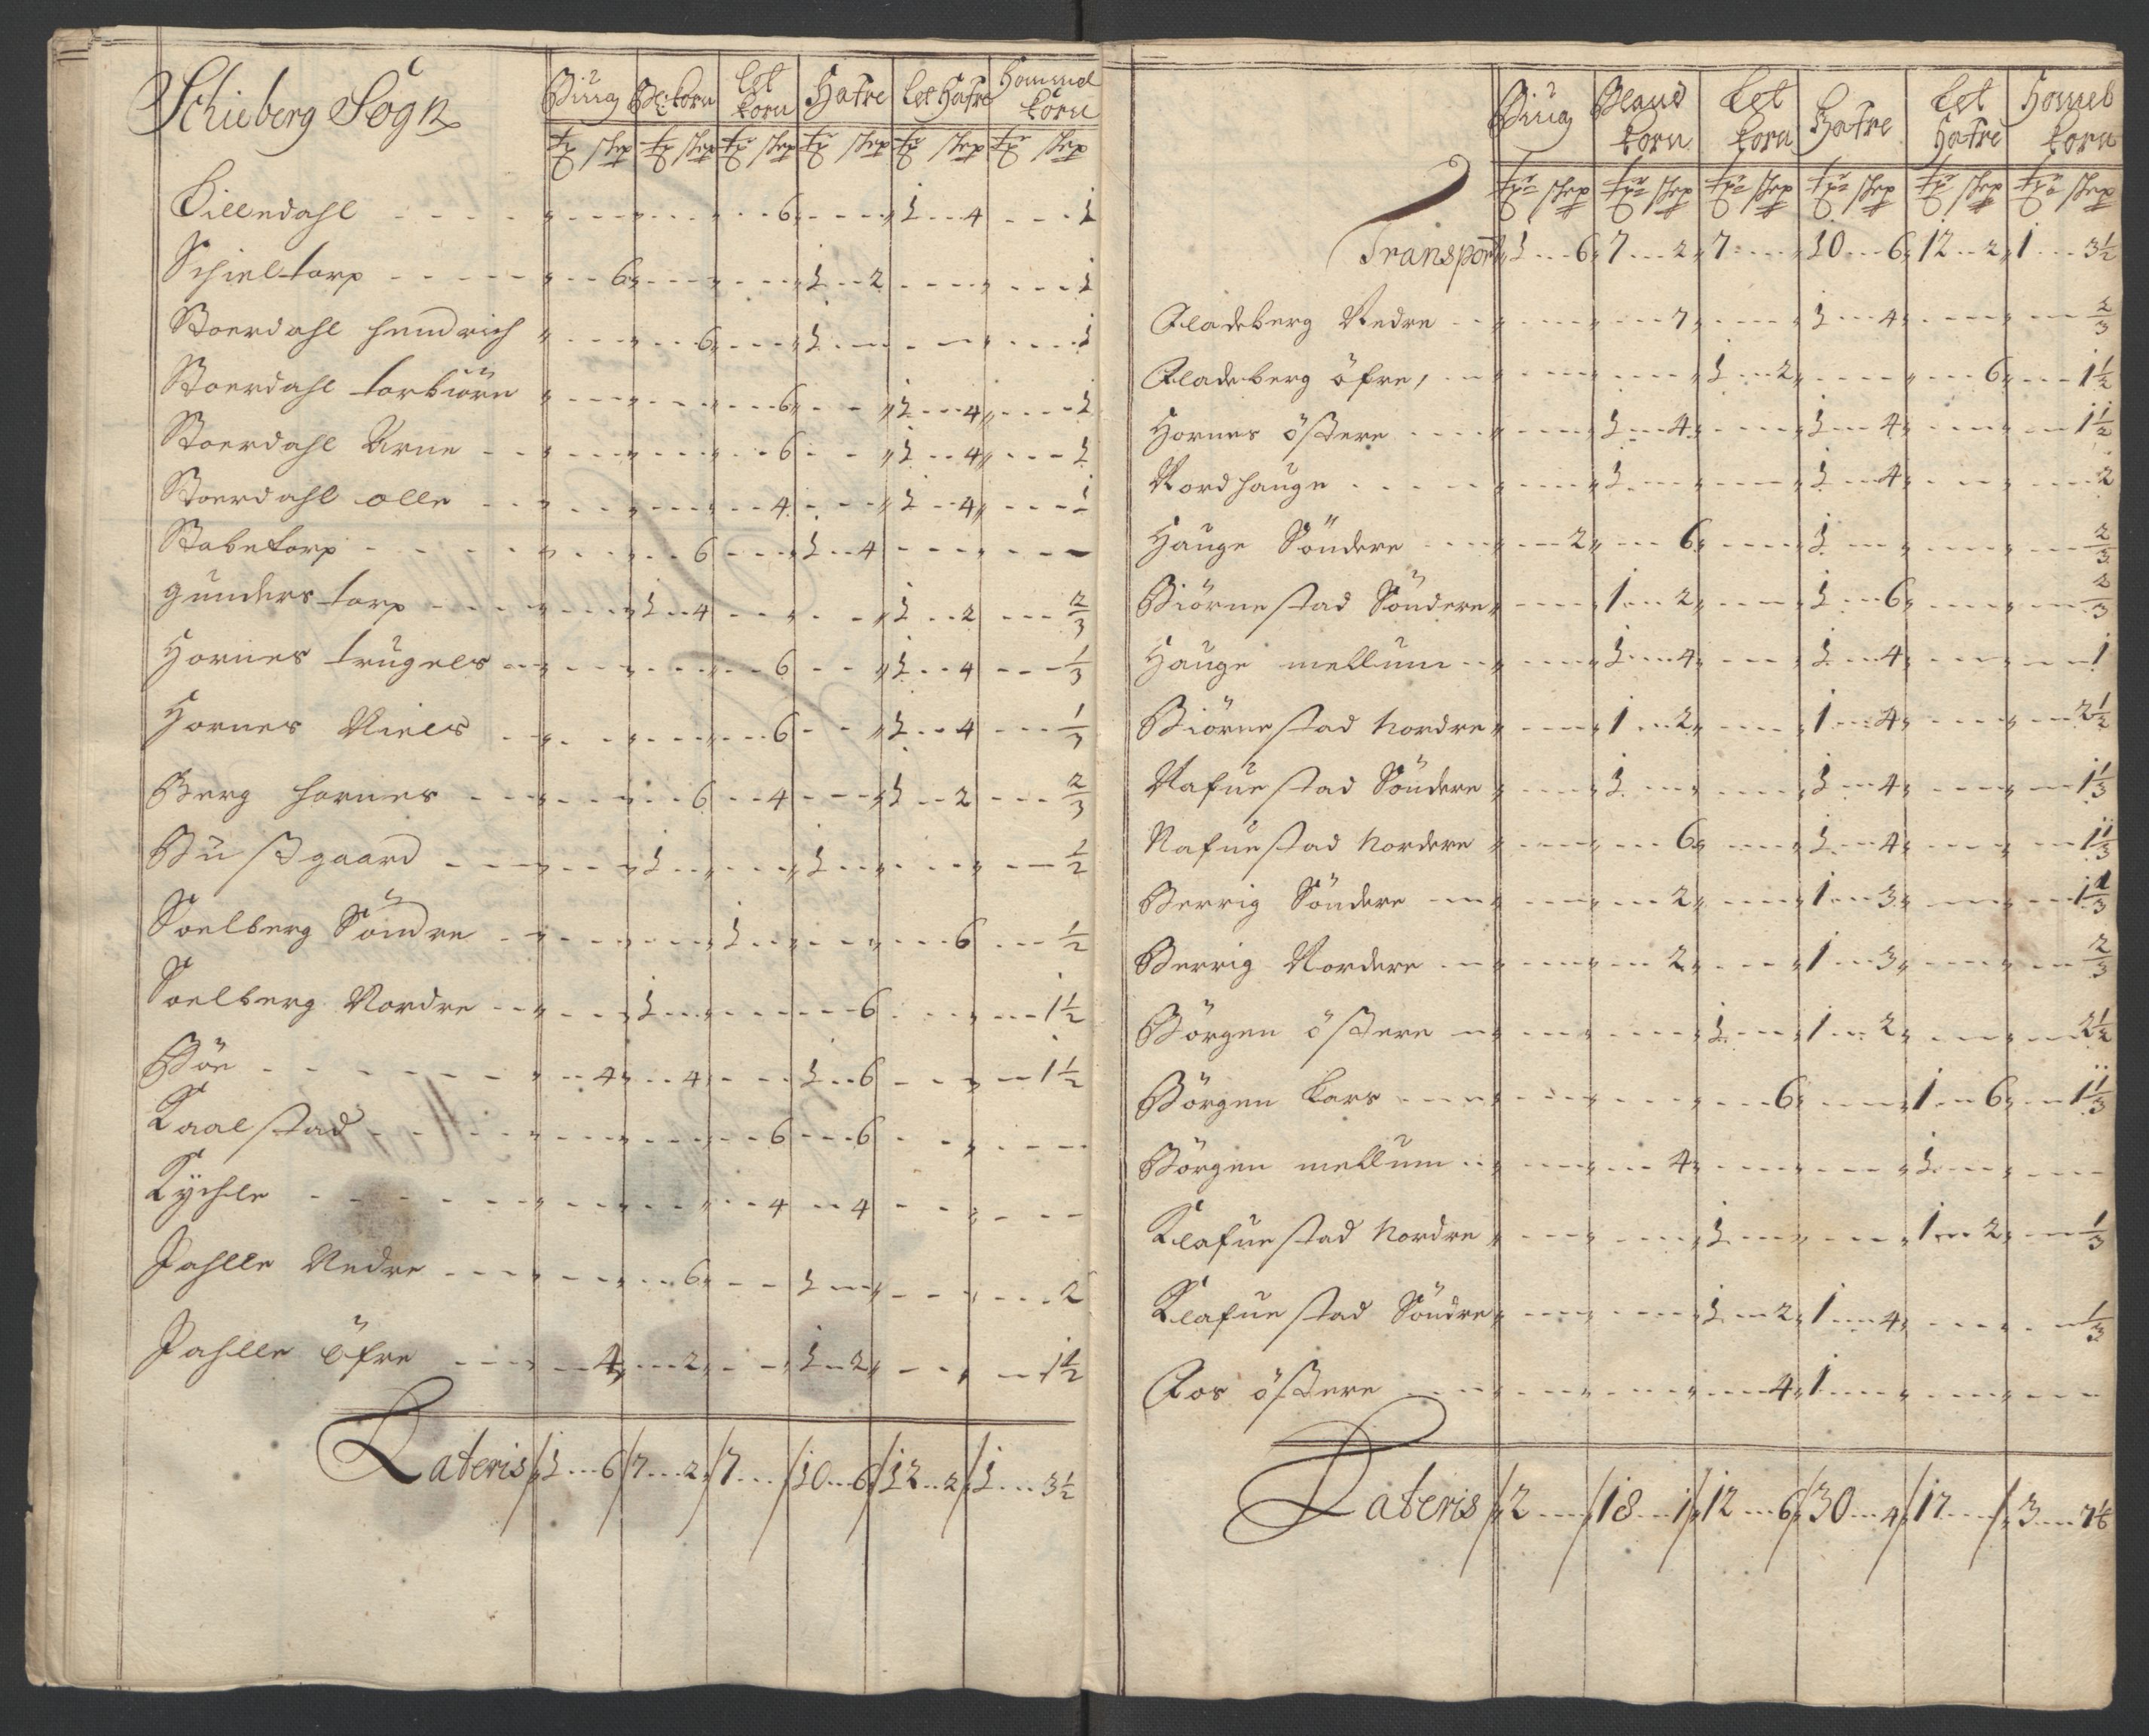 Schieberg Sogn
Biug Bl:korn Let korn Hafre Let Hafre Hommel korn
tr skp tr skp tr skp tr skp tr skp tr skp
Lilledahl 6 1 4 1
Schieltorp 6 1 2 1
Stoerdahl hendrich 6 1 1
Stoerdahl torbiörn 6 1 4 1
Stoerdahl Arne 6 1 4 1
Stoerdahl olle 4 1 4 1
Stabetorp 6 1 4
gunderstorp 1 4 1 2 2/3
Hornes trugels 6 1 4 1/3
Hornes Niels 6 1 4 1/3
Berg hornes 6 4 1 2 2/3
Bustgaard 1 1 1/2
Soelberg Söndre 1 6 1/2
Soelberg Nordre 1 6 1 1/2
Böe 4 4 1 6 1 1/2
Kaalstad 6 6
Kychle 4 4
Pahlle Nedre 6 1 2
Pahlle öfre 4 2 1 2 1 1/2
Lateris 1 6 7 2 7 10 6 12 2 1 3 1/2
Biug Bland korn Let korn Hafre Let Hafre Homel korn
tr skp tr skp tr skp tr skp tr skp tr skp
Transport 1 6 7 2 7 10 6 12 2 1 3 1/2
Fladeberg Nedre 7 1 4 2/3
Fladeberg öfre 1 2 6 1 1/2
Hornes östere 1 4 1 4 1 1/2
Nordhauge 1 1 4 2
Hauge Söndere 2 6 1 2/3
Biörnestad Söndere 1 2 1 6 2/3
Hauge mellum 1 4 1 4 1
Biörnestad Nordre 1 2 1 4 2 1/2
Nafuestad Söndere 1 1 4 1 1/3
Nafuestad Nordere 6 1 4 1 1/3
Berrig Söndere 2 1 3 1 1/3
Berrig Nordere 2 1 3 2/3
Börgen östere 1 1 2 2 1/2
Börgen Lars 6 1 6 1 1/3
Börgen mellum 4 1
Klafuestad Nordre 1 1 2 1/3
Klafuestad Söndre 1 2 1 4 1/3
Aos östere 4 1
Lateris 2 18 1 12 6 30 4 17 3 7 1/6